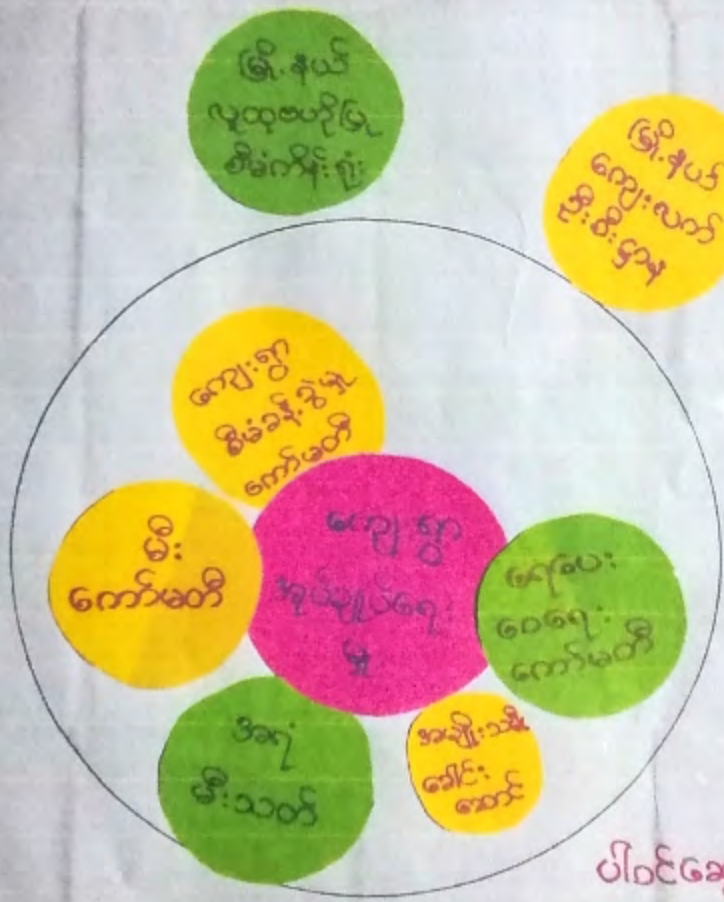 မြို့နယ်
လူထုဗဟိုပြု
စီမံကိန်းရုံး
မြို့နယ်
ကျေးလက်
ဦးစီးဌာန
ကျေးရွာ
စီမံခန့်ခွဲမှု
ကော်မတီ
မီး
ကော်မတီ
ကျေးရွာ
အုပ်ချုပ်ရေး
မှူး
ရေပေး
ဝေရေး
ကော်မတီ
အရံ
မီးသတ်
အမျိုးသမီး
ခေါင်း
ဆောင်